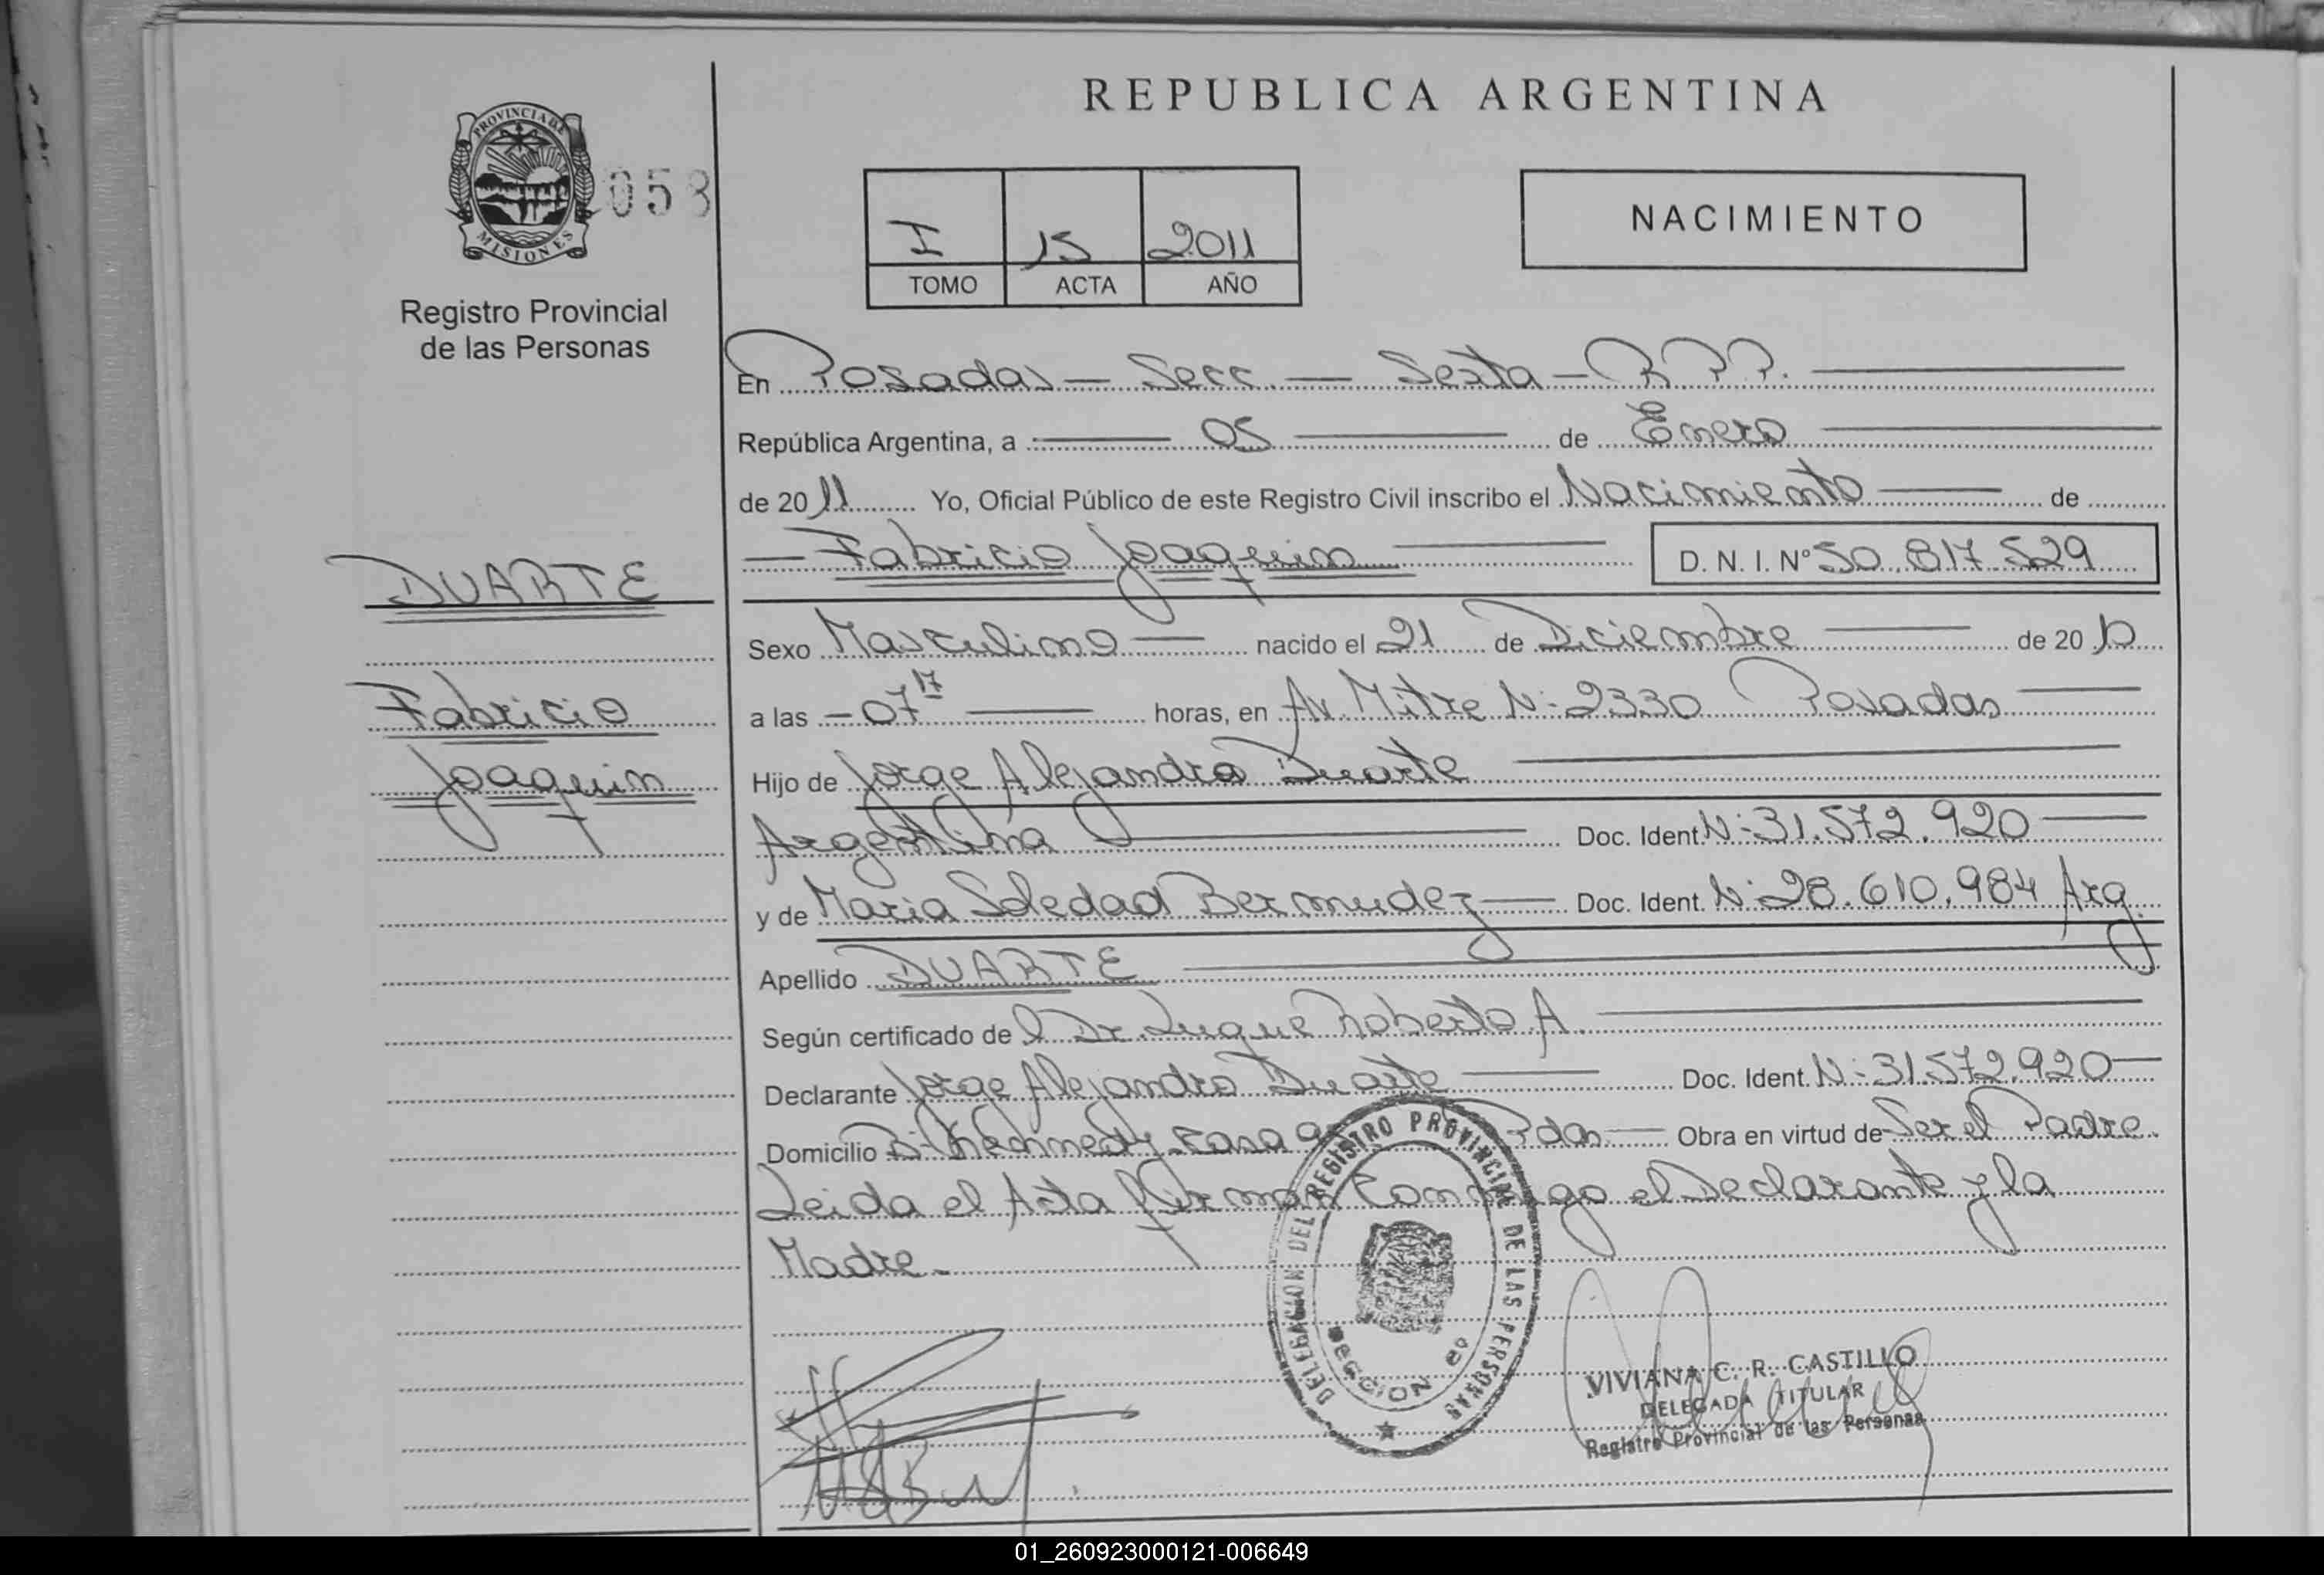 REPUBLICA ARGENTINA
PROVINCIA DE MISIONES
058
Registro Provincial
de las Personas
I 15 2011
TOMO ACTA AÑO
NACIMIENTO
En Posadas - Secc - Sexta - R P P.
República Argentina, a 05 de Enero
de 20 11 Yo, Oficial Público de este Registro Civil inscribo el Nacimiento de
Fabricio Joaquin D. N. I. Nº 50.817.529
DUARTE
Fabricio
Joaquin
Sexo Masculino nacido el 21 de Diciembre de 20 10
a las - 07 17 horas, en Av. Mitre N: 2330 Posadas
Hijo de Jorge Alejandro Duarte
Argentina Doc. Ident. N: 31.572.920
y de Maria Soledad Bermudez Doc. Ident. N: 28.610.984 Arg.
Apellido DUARTE
Según certificado de l Dr. Luque Roberto A
Declarante Jorge Alejandro Duarte Doc. Ident. N: 31.572.920
Domicilio Kennedy casa Pdas Obra en virtud de Ser el Padre.
Leida el Acta firman Conmigo el Declarante y la
Madre.
DELEGACION DEL REGISTRO PROVINCIAL DE LAS PERSONAS
SECCION 6º
VIVIANA C. R. CASTILLO
DELEGADA TITULAR
Registro Provincial de las Personas
01_260923000121-006649